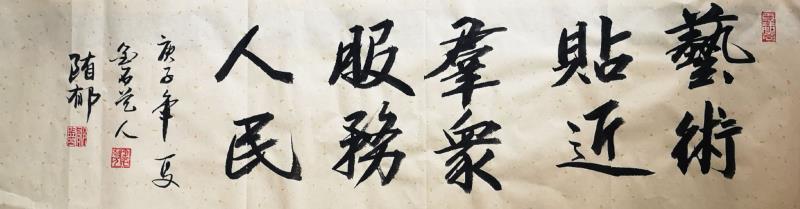 藝術
貼近
羣衆
服務
人民
庚子年夏
金石艺人
随郁